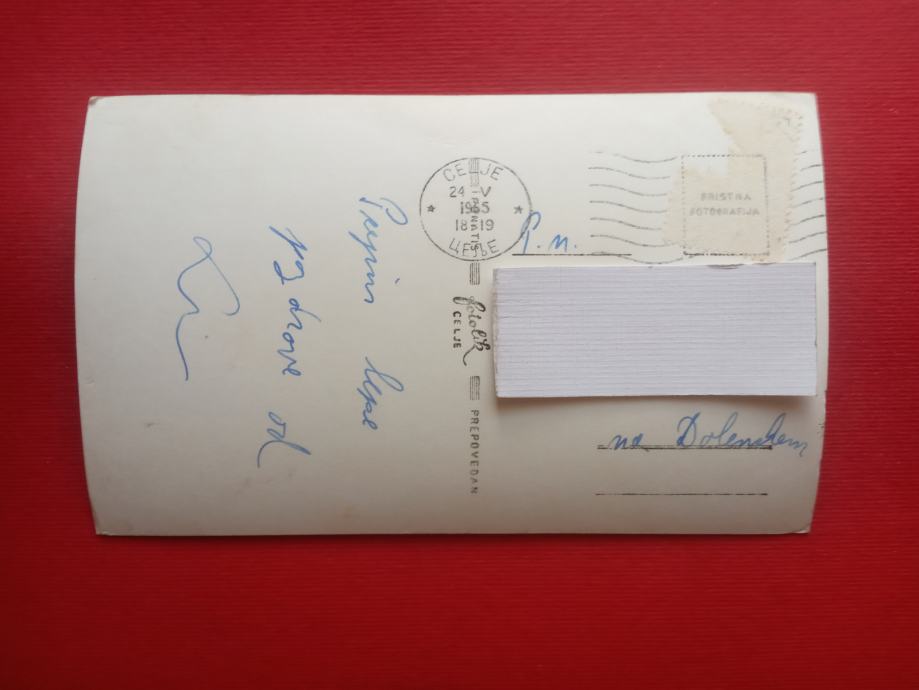 lepe
pozdrave od
CELJE
24 V
1965
18-19
ЦЕЉЕ
PONATIS
fotolik
CELJE
PREPOVEDAN
PRISTNA
FOTOGRAFIJA
T. n.
na Dolenskem